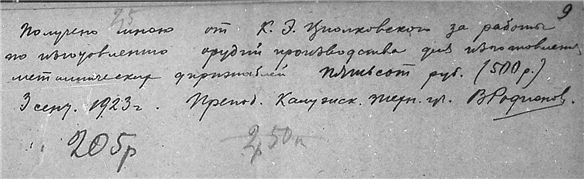 9
25
Получено мною от К. Э. Циолковского за работы
по изготовлению орудий производства для изготовления
металлических дирижаблей пятьсот руб. (500 р.)
3 сент. 1923 г. Препод. Калужск. техн. уч. В Родионов.
205р 2,50к